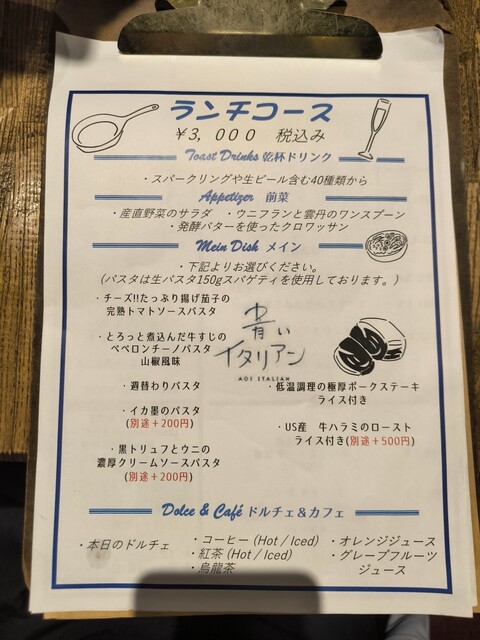 ランチコース
￥3，000 税込み
Toast Drinks 乾杯ドリンク
・スパークリングや生ビール含む40種類から
Appetizer 前菜
・産直野菜のサラダ ・ウニフランと雲丹のワンスプーン
・発酵バターを使ったクロワッサン
Mein Dish メイン
・下記よりお選びください。
(パスタは生パスタ150gスパゲティを使用しております。)
・チーズ!!たっぷり揚げ茄子の
完熟トマトソースパスタ
・とろっと煮込んだ牛すじの
ペペロンチーノパスタ
山椒風味
・週替わりパスタ
・イカ墨のパスタ
(別途＋200円)
・黒トリュフとウニの
濃厚クリームソースパスタ
(別途＋200円)
青いイタリアン
AOI ITALIAN
・低温調理の極厚ポークステーキ
ライス付き
・US産 牛ハラミのロースト
ライス付き(別途＋500円)
Dolce & Café ドルチェ＆カフェ
・本日のドルチェ
・コーヒー (Hot / Iced)
・紅茶 (Hot / Iced)
・烏龍茶
・オレンジジュース
・グレープフルーツ
ジュース